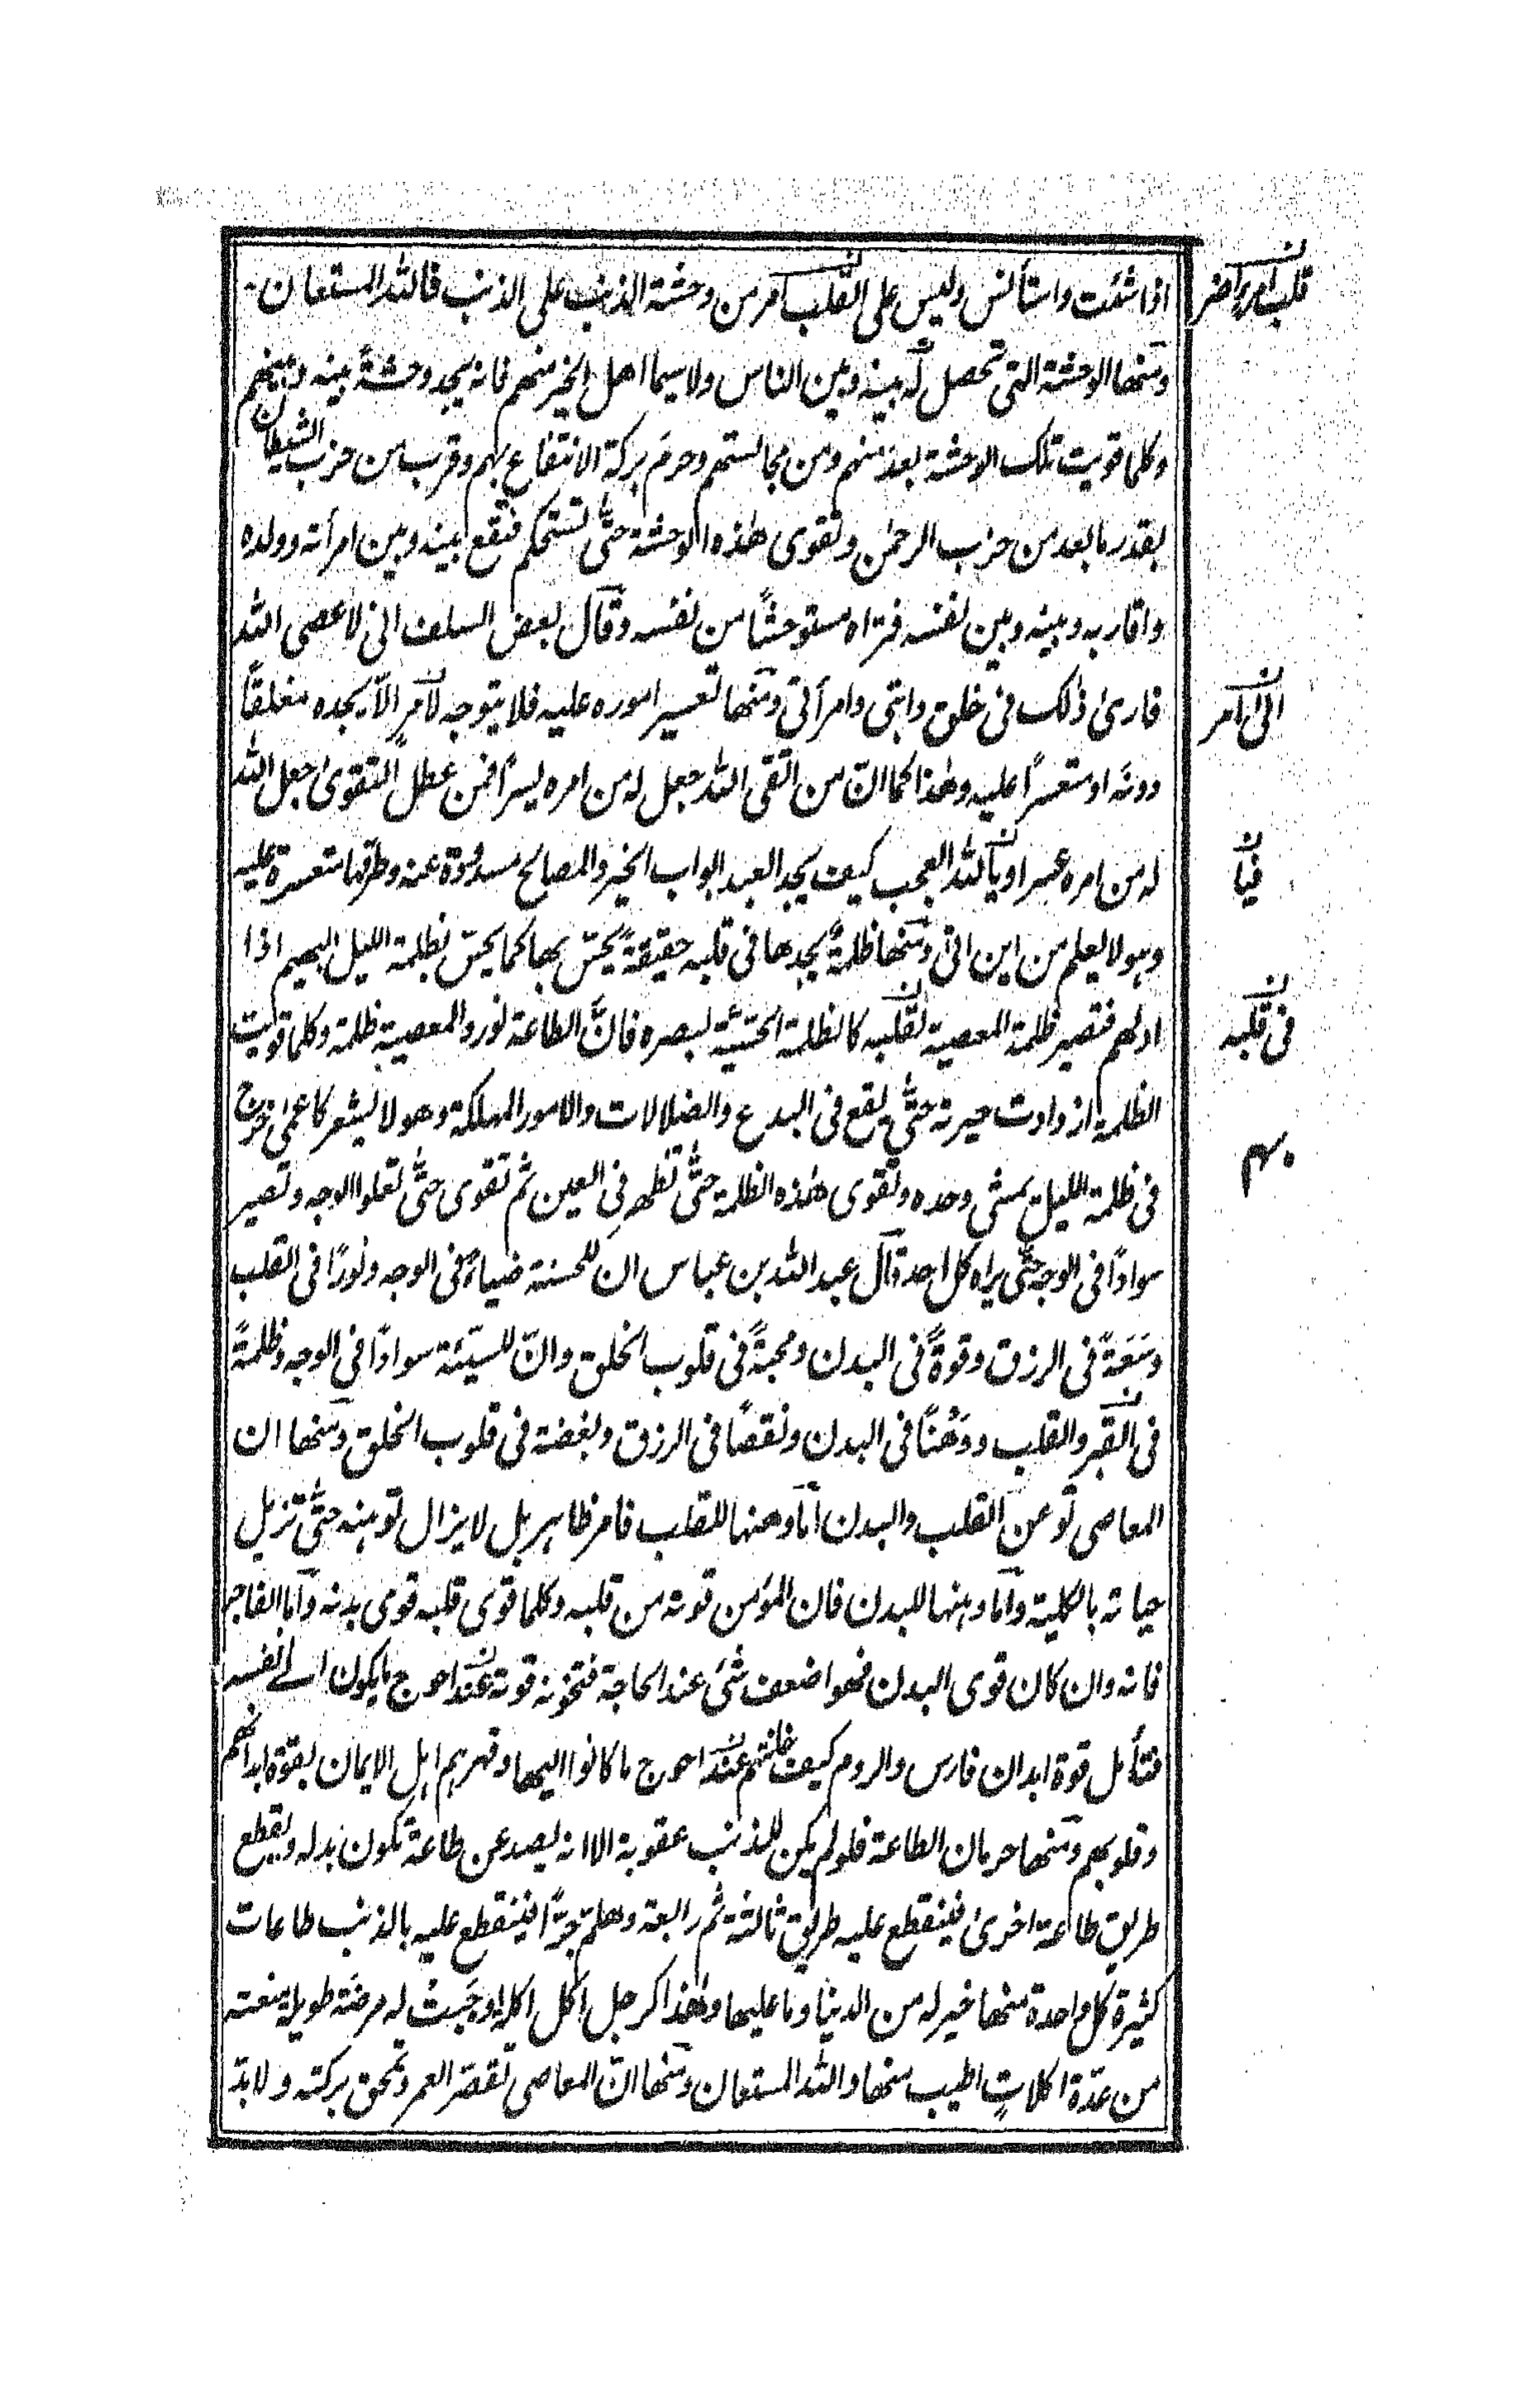 اذا شئت واستأنس وليس على القلب امر من وحشة الذنب على الذنب فالله المستعان -
ومنها الوحشة التى تحصل له بينه وبين الناس ولاسيما اهل الخير منهم فانه يجد وحشةً بينه وبينهم
وكلما قويت تلك الوحشة بعد منهم ومن مجالستهم وحرم بركة الانتفاع بهم وقرب من حزب الشيطان
بقدر ما بعد من حزب الرحمٰن وتقوى هذه الوحشة حتّى تستحكم فتقع بينه وبين امرأته وولده
واقاربه وبينه وبين نفسه فتراه مستوحشًا من نفسه وقال بعض السلف انى لاعصى الله
فارىٰ ذٰلك فى خلق دابتى وامرأتى ومنها تعسير اموره عليه فلا يتوجه لامرٍ الّا يجده مغلقًا
دونه او متعسرًا عليه وهٰذا كما انّ من اتقى الله جعل له من امره يسرًا فمن عطل التقوىٰ جعل الله
له من امره عسرا ويالله العجب كيف يجد العبد ابواب الخير والمصالح مسدودة عنه وطرقها متعسرة عليه
وهو لا يعلم من اين اتى ومنها ظلمةٌ يجدها فى قلبه حقيقةً يحسّ بها كما يحسّ بظلمة الليل البهيم اذا
ادلهم فتصير ظلمة المعصية لقلبه كالظلمة الحسّيّة لبصره فانّ الطاعة نور والمعصية ظلمة وكلما قويت
الظلمة ازدادت حيرته حتّى يقع فى البدع والضلالات والامور المهلكة وهو لا يشعر كاعمىٰ خرج
فى ظلمة الليل يمشى وحده وتقوى هٰذه الظلمة حتّى تظهر فى العين ثم تقوى حتّى تعلوا الوجه وتصير
سوادًا فى الوجه حتّى يراه كل احد قال عبد الله بن عباس ان للحسنة ضياءً فى الوجه ونورًا فى القلب
وسَعَةً فى الرزق وقوةً فى البدن ومحبةً فى قلوب الخلق وانّ للسيّئة سوادًا فى الوجه وظلمةً
فى القبر والقلب ووَهْنًا فى البدن ونقصًا فى الرزق وبغضة فى قلوب الخلق ومنها ان
المعاصى توهن القلب والبدن اما وهنها للقلب فامر ظاهر بل لا يزال توهنه حتّى تزيل
حياته بالكلية واما وهنها للبدن فان المؤمن قوته من قلبه وكلما قوى قلبه قوى بدنه واما الفاجر
فانه وان كان قوى البدن فهو اضعف شئ عند الحاجة فتخونه قوته عند احوج ما يكون الى نفسه
فتأمل قوة ابدان فارس والروم كيف خانتهم عند احوج ما كانوا اليها وقهرهم اهل الايمان بقوة ابدانهم
وقلوبهم ومنها حرمان الطاعة فلو لم يكن للذنب عقوبة الا انه يصد عن طاعة تكون بدله ويقطع
طريق طاعة اخرىٰ فينقطع عليه طريق ثالثة ثم رابعة وهلم جرًّا فينقطع عليه بالذنب طاعات
كثيرة كل واحدة منها خير له من الدنيا وما عليها وهٰذا كرجل اكل اكلة اوجبت له مرضة طويلة منعته
من عدّة اكلاتٍ اطيب منها والله المستعان ومنها انّ المعاصى تقصر العمر وتمحق بركته ولابدّ
انى امر
فيا
فى قلبه
بهم